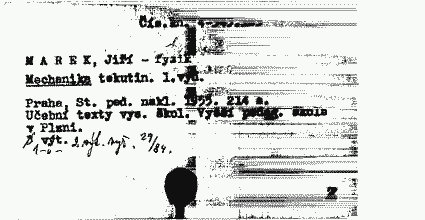 M A R E K, Jiří - fysik
Mechanika tekutin. 1.vyd.
Praha, St. ped. nakl. 1955. 214 s.
Učební texty vys. škol. Vyšší pedag. škola
v Plzni.
výt. 2 výt. vyř. 29/84.
Z